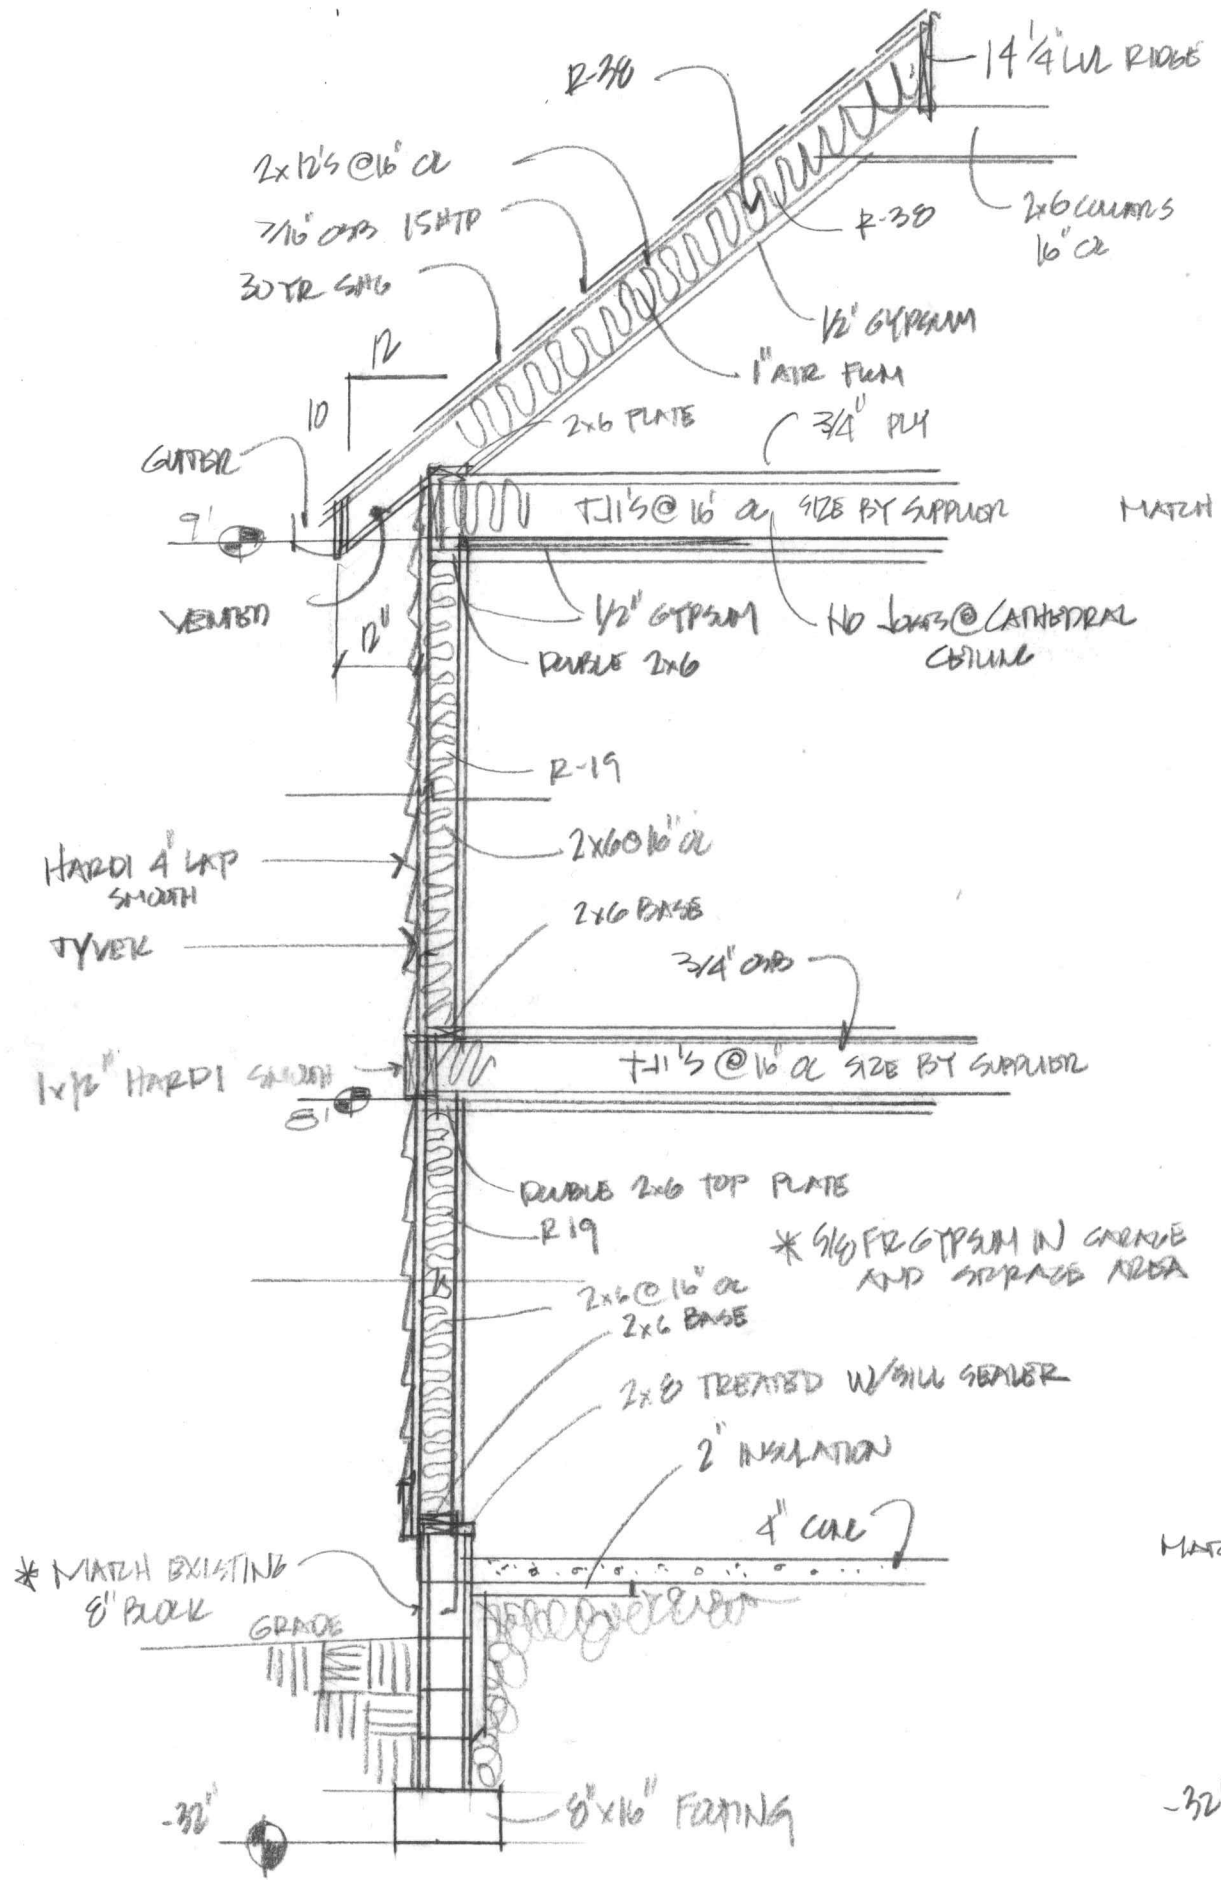 R-38
14 1/4" LVL RIDGE
2x12'S @ 16" OC
7/16" OSB 15# TP
30 YR SHG
R-38
2x6 COLLARS
16" OC
1/2" GYPSUM
12
1" AIR FLOW
10
2x6 PLATE
3/4" PLY
GUTTER
9'
TJI'S @ 16" OC SIZE BY SUPPLIER
MATCH
VENTED
12"
1/2" GYPSUM
NO JOISTS @ CATHEDRAL
CEILING
DOUBLE 2x6
R-19
2x6 @ 16" OC
HARDI 4" LAP
SMOOTH
2x6 BASE
TYVEK
3/4" OSB
1x12" HARDI SMOOTH
TJI'S @ 16" OC SIZE BY SUPPLIER
8'
DOUBLE 2x6 TOP PLATE
R 19
* 5/8 FR GYPSUM IN GARAGE
AND STORAGE AREA
2x6 @ 16" OC
2x6 BASE
2x8 TREATED W/ SILL SEALER
2" INSULATION
4" CONC
* MATCH EXISTING
8" BLOCK
GRADE
-32"
8"x16" FOOTING
-32